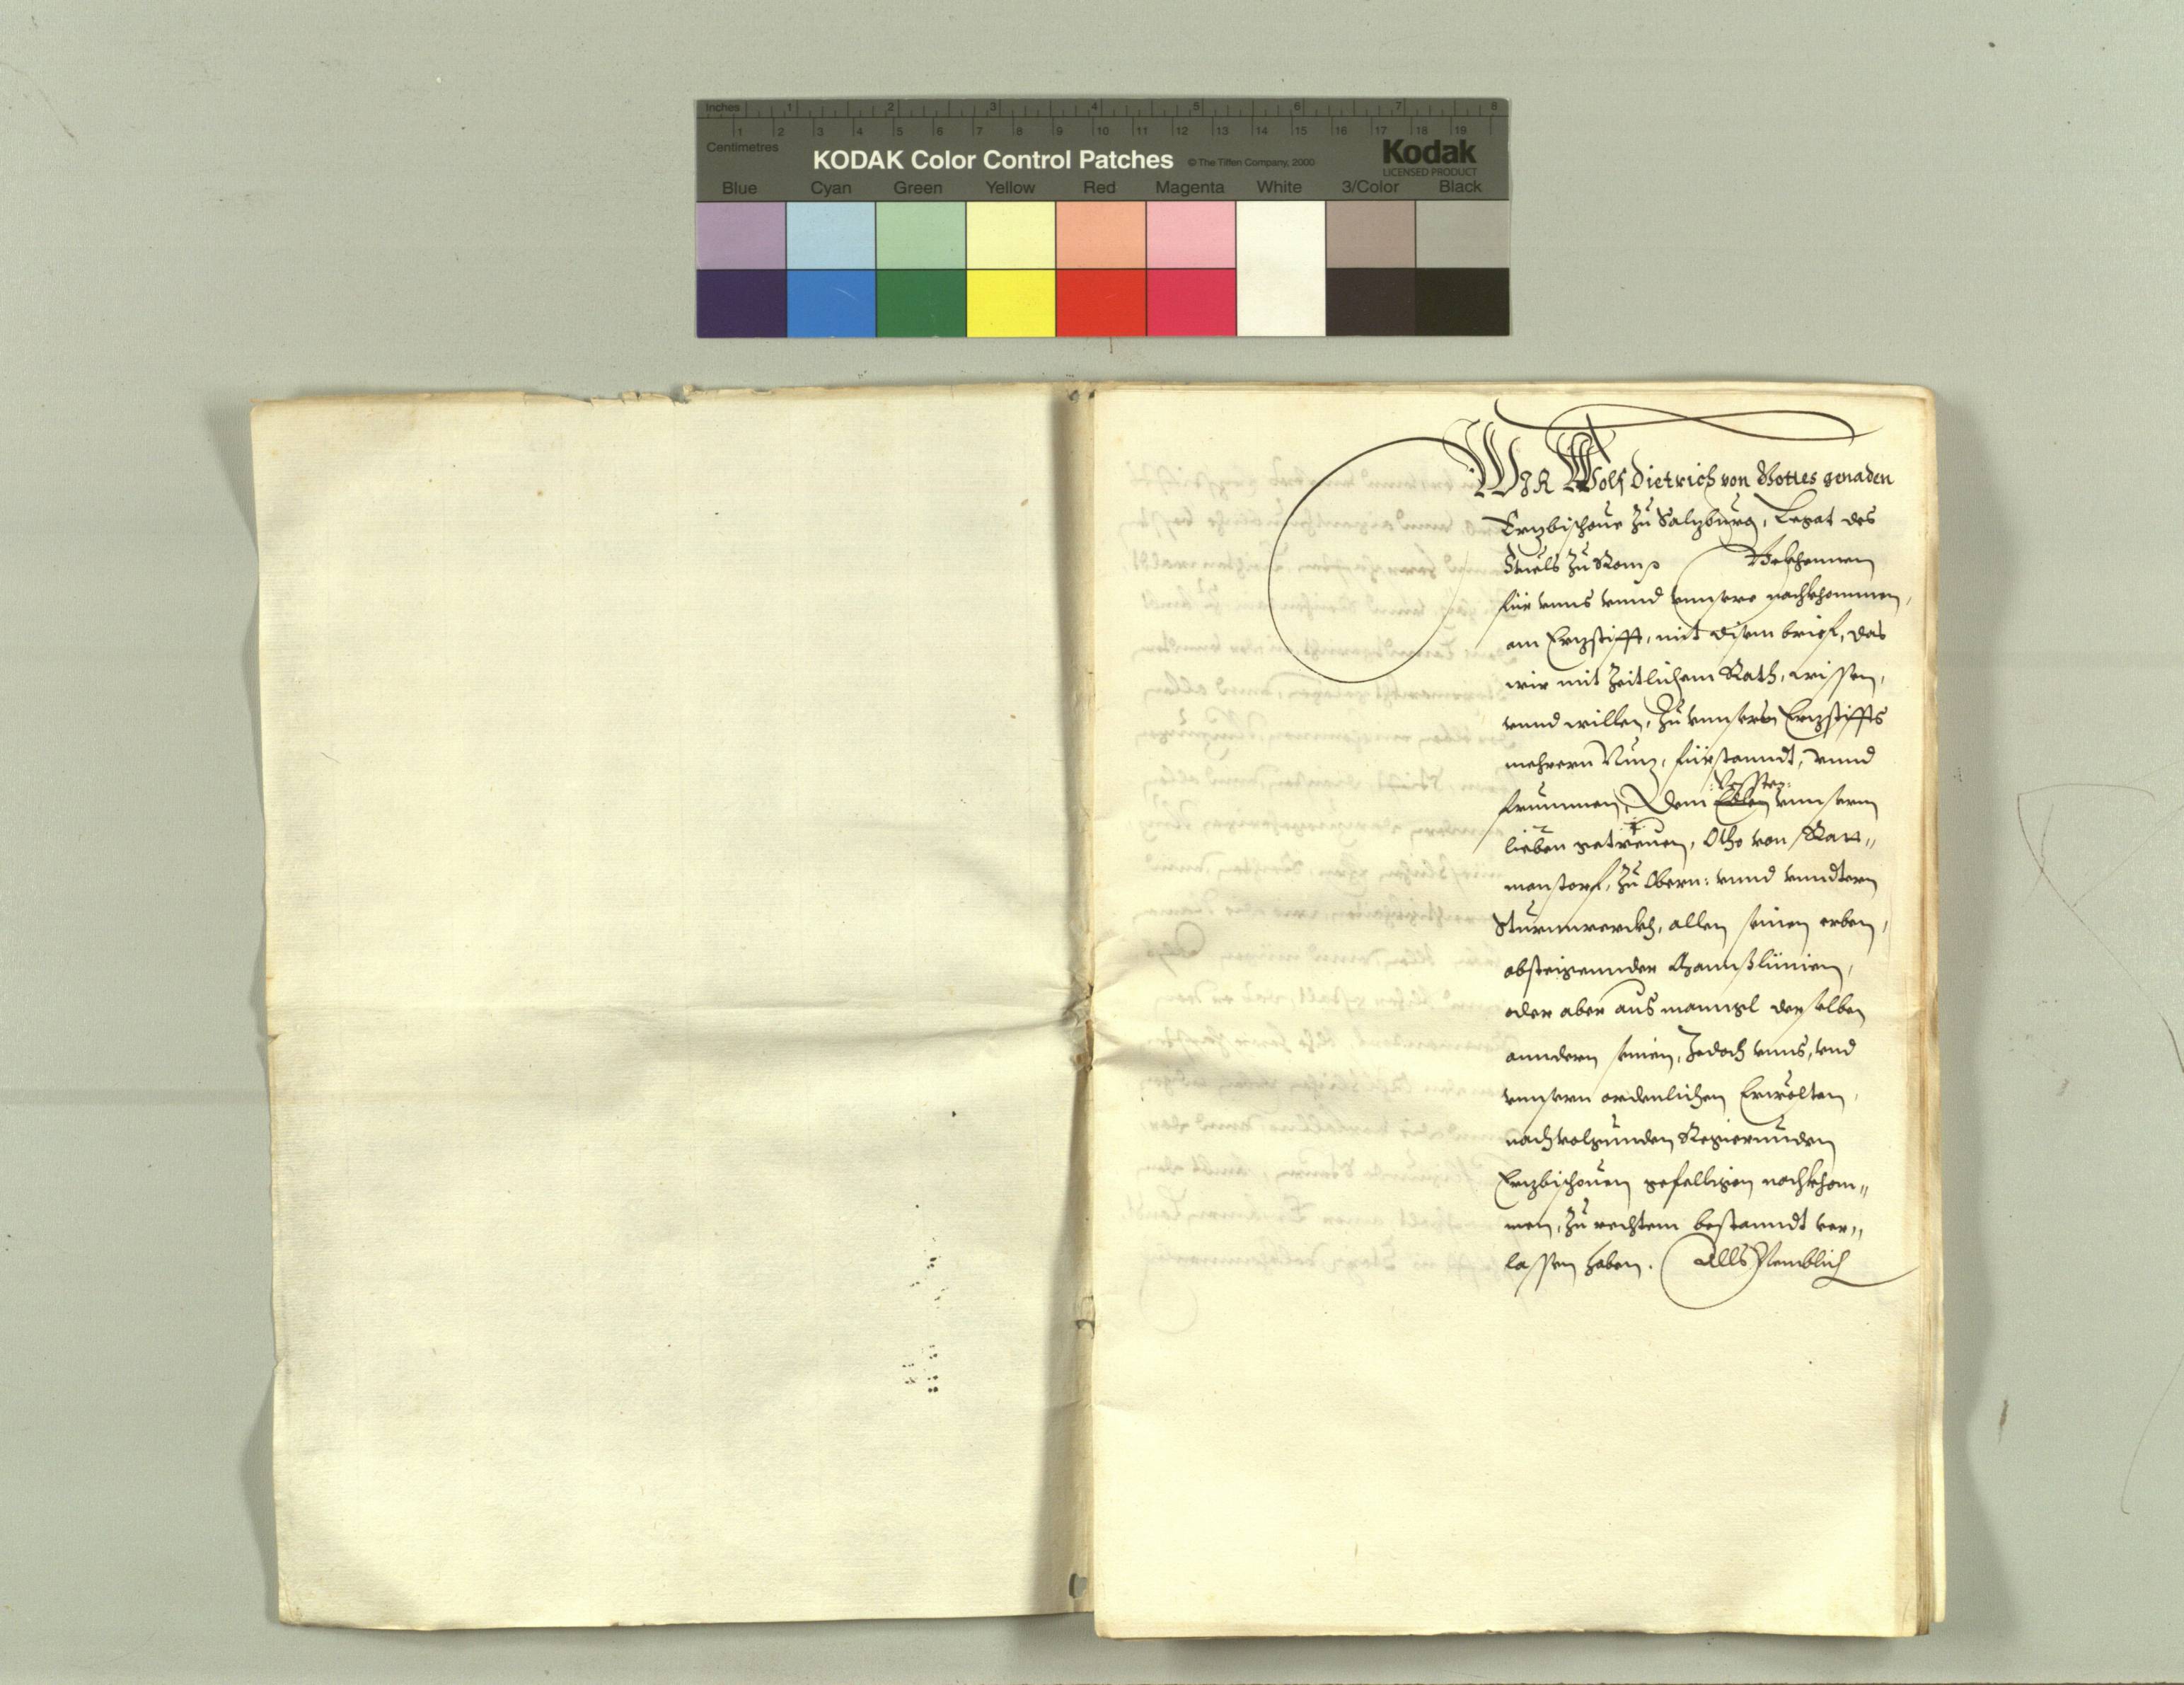 Inches 1 2 3 4 5 6 7 8
1 2 3 4 5 6 7 8 9 10 11 12 13 14 15 16 17 18 19
Centimetres
KODAK Color Control Patches © The Tiffen Company, 2000 Kodak
LICENSED PRODUCT
Blue Cyan Green Yellow Red Magenta White 3/Color Black
WIR Wolf Dietrich von Gottes genaden
Erzbischoue zu Salzburg, Legat des
Stuels zu Rom Bekhennen
für vnns vnnd vnnsere nachkhommen,
am Erzstifft, mit disem brief, das
wir mit zeitlichem Rath, wissen,
vnnd willen, zu vnnsers Erzstiffts
mehrern Nuz, fürstanndt, vnnd
frummen, Dem Edlen vnnserm
Vessten:
lieben getreuen, Otho von
manstorf, zu Obern: vnnd vnndtern
Sturmwerckh, allen seinen erben,
absteigennder
oder aber aus manngl derselben
anndern seinen, Jedoch vnns, vnd
vnnsern ordenlichen Erwölten,
nachuolgunden Regierunden
Erzbischouen gefelligen nachkhom„
men, zu rechtem bestanndt ver„
lassen haben. Alls Nemblich